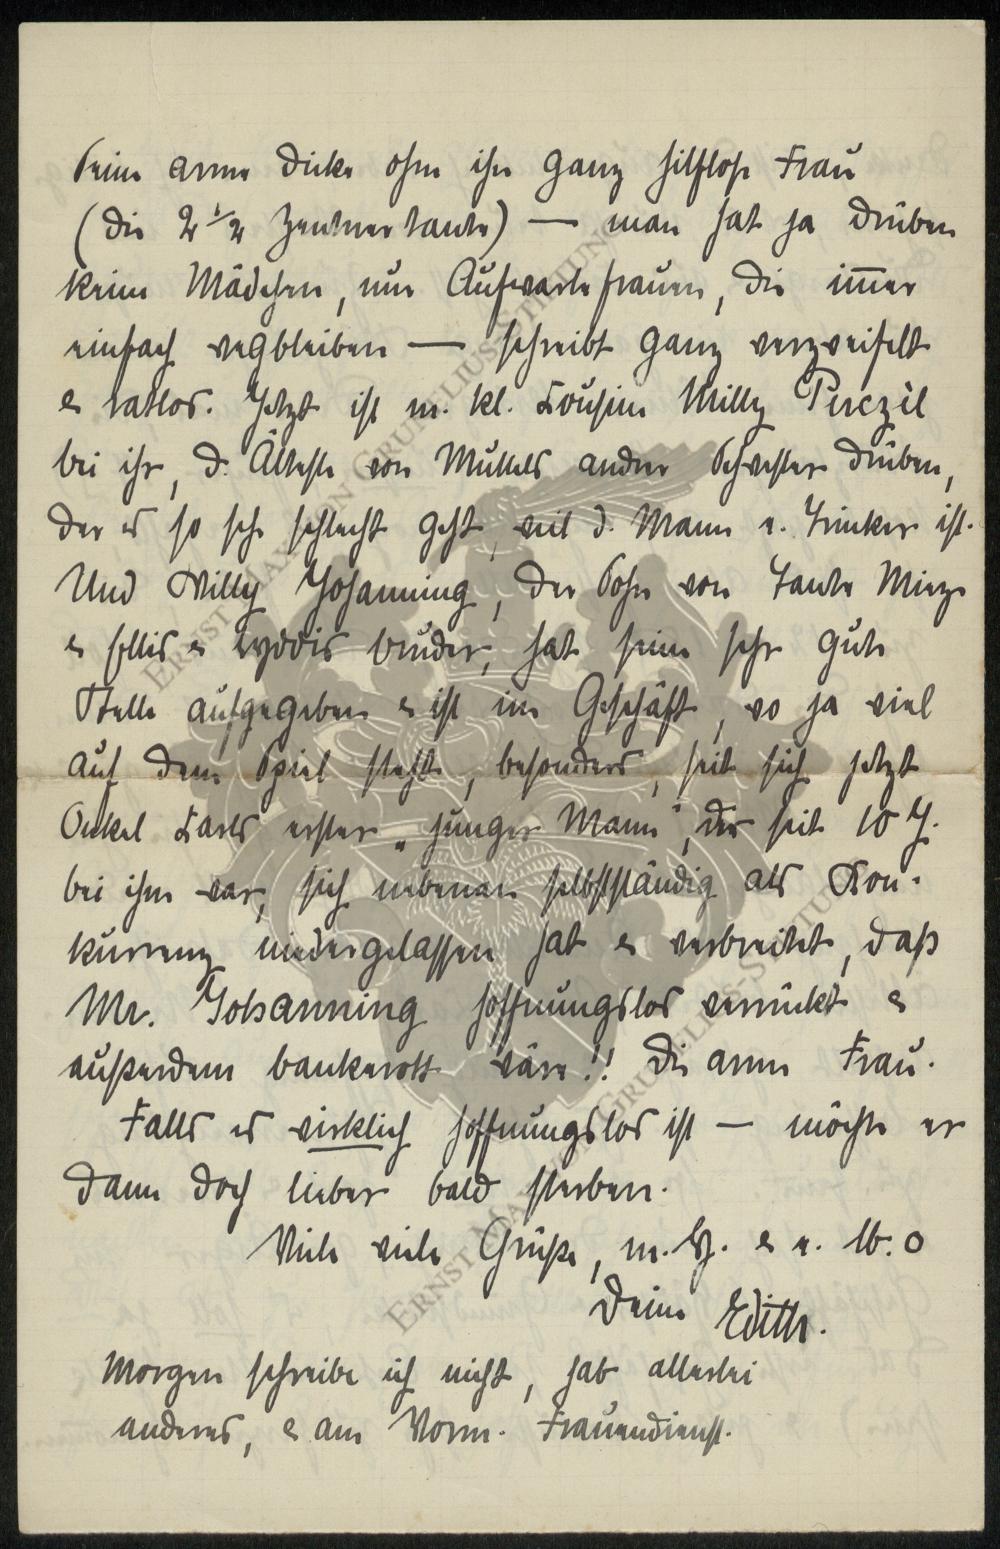 Seine arme dicke ohne ihn ganz hilflose Frau
(die 2 1/2 Zentnertante) — man hat ja drüben
keine Mädchen, nur Aufwartefrauen, die im̅er
einfach wegbleiben — schreibt ganz verzweifelt
& ratlos. Jetzt ist m. kl. Cousine Milly Perczèl
bei ihr, d. Älteste von Muttels andrer Schwester drüben,
der es so sehr schlecht geht, weil d. Mann e. Trinker ist.
Und Willy Johanning, der Sohn von Tante Mieze
& Ellis & Lyddis Bruder, hat seine sehr gute
Stelle aufgegeben & ist im Geschäft, wo ja viel
auf dem Spiel steht, besonders, seit sich jetzt
Onkel Carls erster „junger Mann", der seit 10 J.
bei ihm war, sich nebenan selbstständig als Kon-
kurrenz niedergelassen hat & verbreitet, daß
Mr. Johanning hoffnungslos verrückt &
außerdem bankerott wäre!! Die arme Frau.
Falls es wirklich hoffnungslos ist — möchte er
dann doch lieber bald sterben.
Viele viele Grüße, m. H. & e. lb. o
Deine Edith.
Morgen schreibe ich nicht, hab allerlei
anderes, & am Vorm. Frauendienst.
ERNST MAX VON GRUNELIUS-STIFTUNG
ERNST MAX VON GRUNELIUS-STIFTUNG